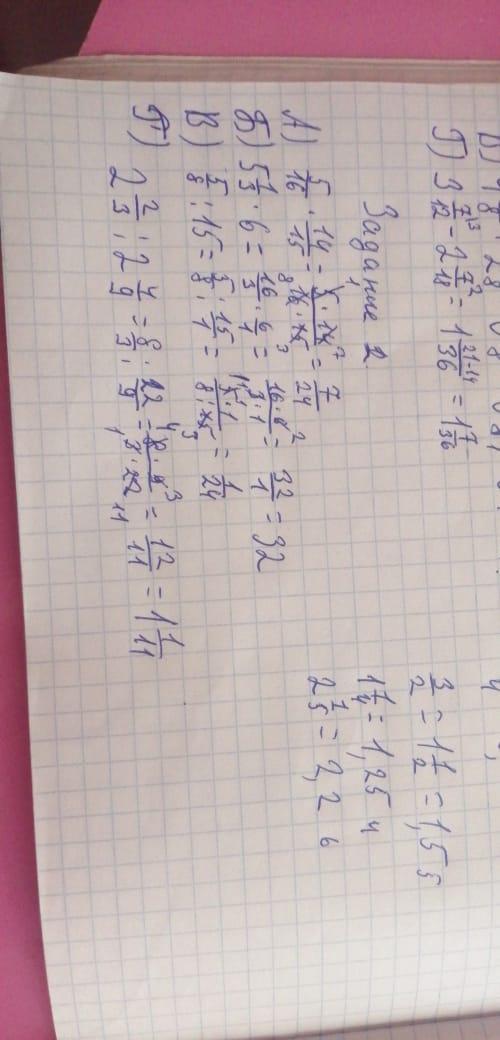 Г) 3 7/12 - 2 7/18 = 1 21-14/36 = 1 7/36
Задание 2.
А) 5/16 · 14/15 = 5·14/16·15 = 7/24
Б) 5 1/3 · 6 = 16/3 · 6/1 = 16·6/3·1 = 32/1 = 32
В) 5/8 : 15 = 5/8 : 15/1 = 5·1/8·15 = 1/24
Г) 2 2/3 : 2 4/9 = 8/3 : 22/9 = 8·9/3·22 = 12/11 = 1 1/11
3/2 = 1 1/2 = 1,5
1 1/4 = 1,25
2 1/5 = 2,2